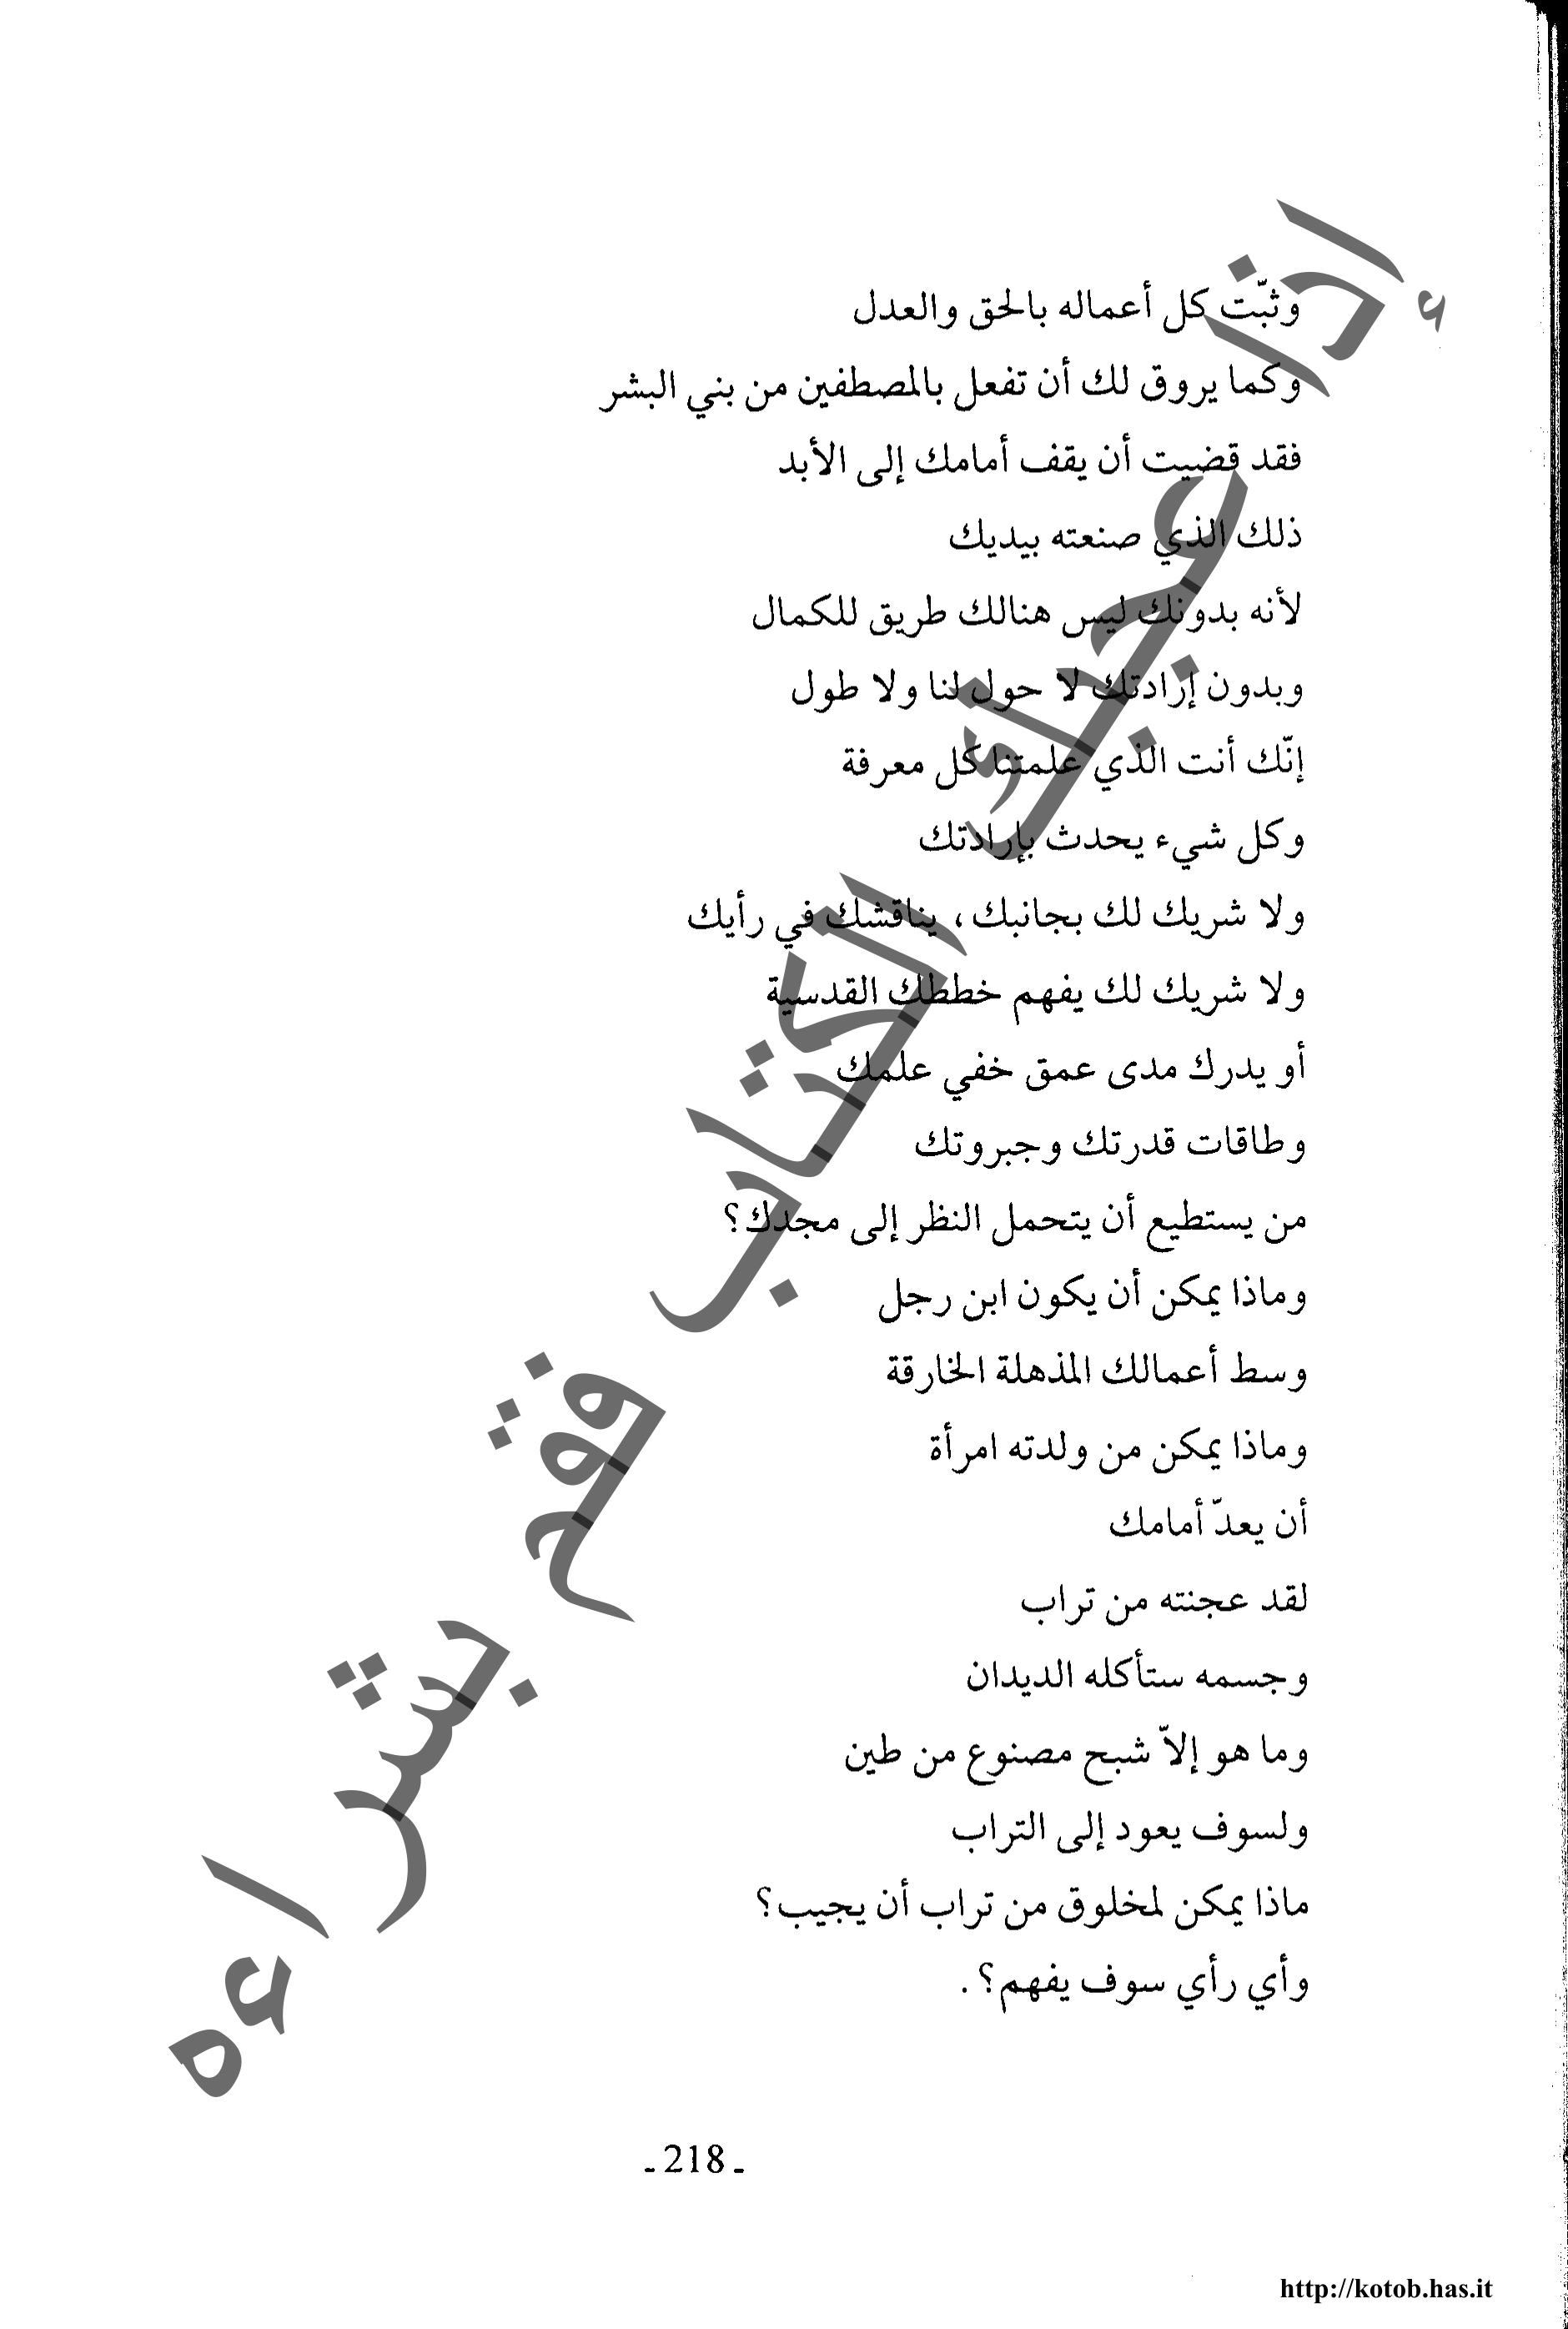 وثبّت كل أعماله بالحق والعدل
وكما يروق لك أن تفعل بالمصطفين من بني البشر
فقد قضيت أن يقف أمامك إلى الأبد
ذلك الذي صنعته بيديك
لأنه بدونك ليس هنالك طريق للكمال
وبدون إرادتك لا حول لنا ولا طول
إنّك أنت الذي علمتنا كل معرفة
وكل شيء يحدث بإرادتك
ولا شريك لك بجانبك، يناقشك في رأيك
ولا شريك لك يفهم خططك القدسية
أو يدرك مدى عمق خفي علمك
وطاقات قدرتك وجبروتك
من يستطيع أن يتحمل النظر إلى مجدك؟
وماذا يمكن أن يكون ابن رجل
وسط أعمالك المذهلة الخارقة
وماذا يمكن من ولدته امرأة
أن يعدّ أمامك
لقد عجنته من تراب
وجسمه ستأكله الديدان
وما هو إلاّ شبح مصنوع من طين
ولسوف يعود إلى التراب
ماذا يمكن لمخلوق من تراب أن يجيب؟
وأي رأي سوف يفهم؟ .
إذا أعجبك الكتاب فقم بشراءه
ـ 218 ـ
http://kotob.has.it